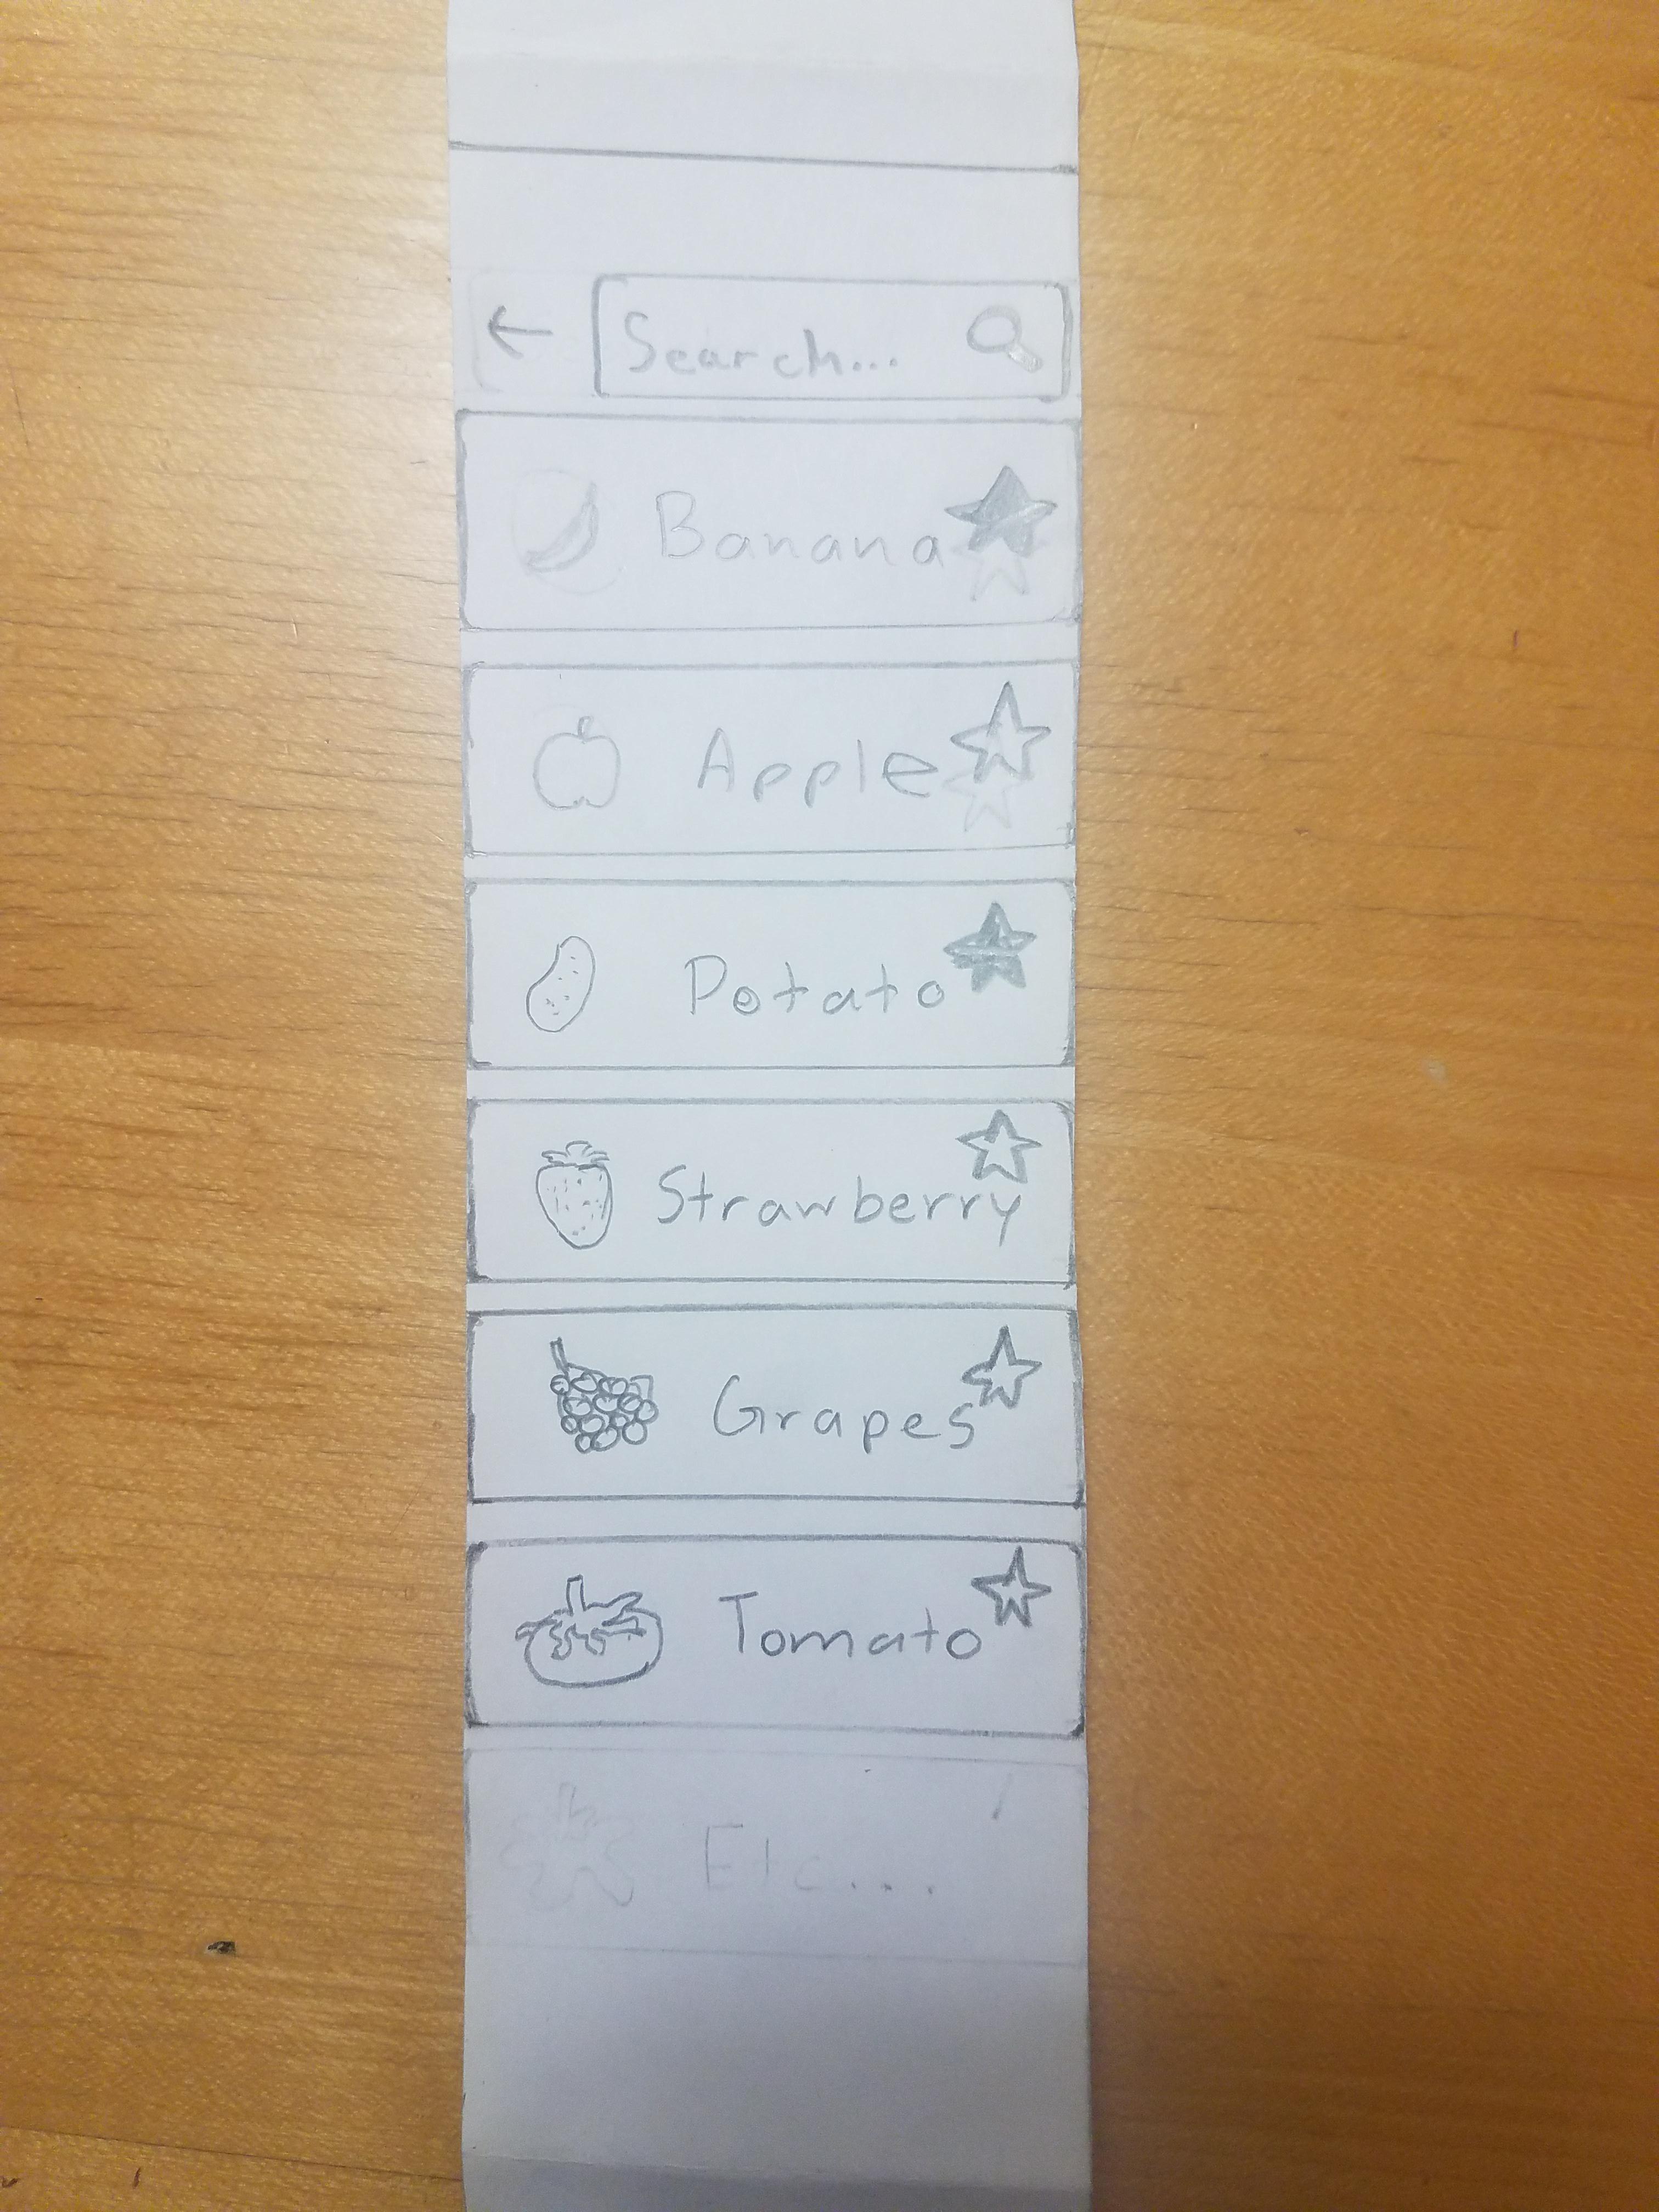 Search...
Banana
Apple
Potato
Strawberry
Grapes
Tomato
Etc...